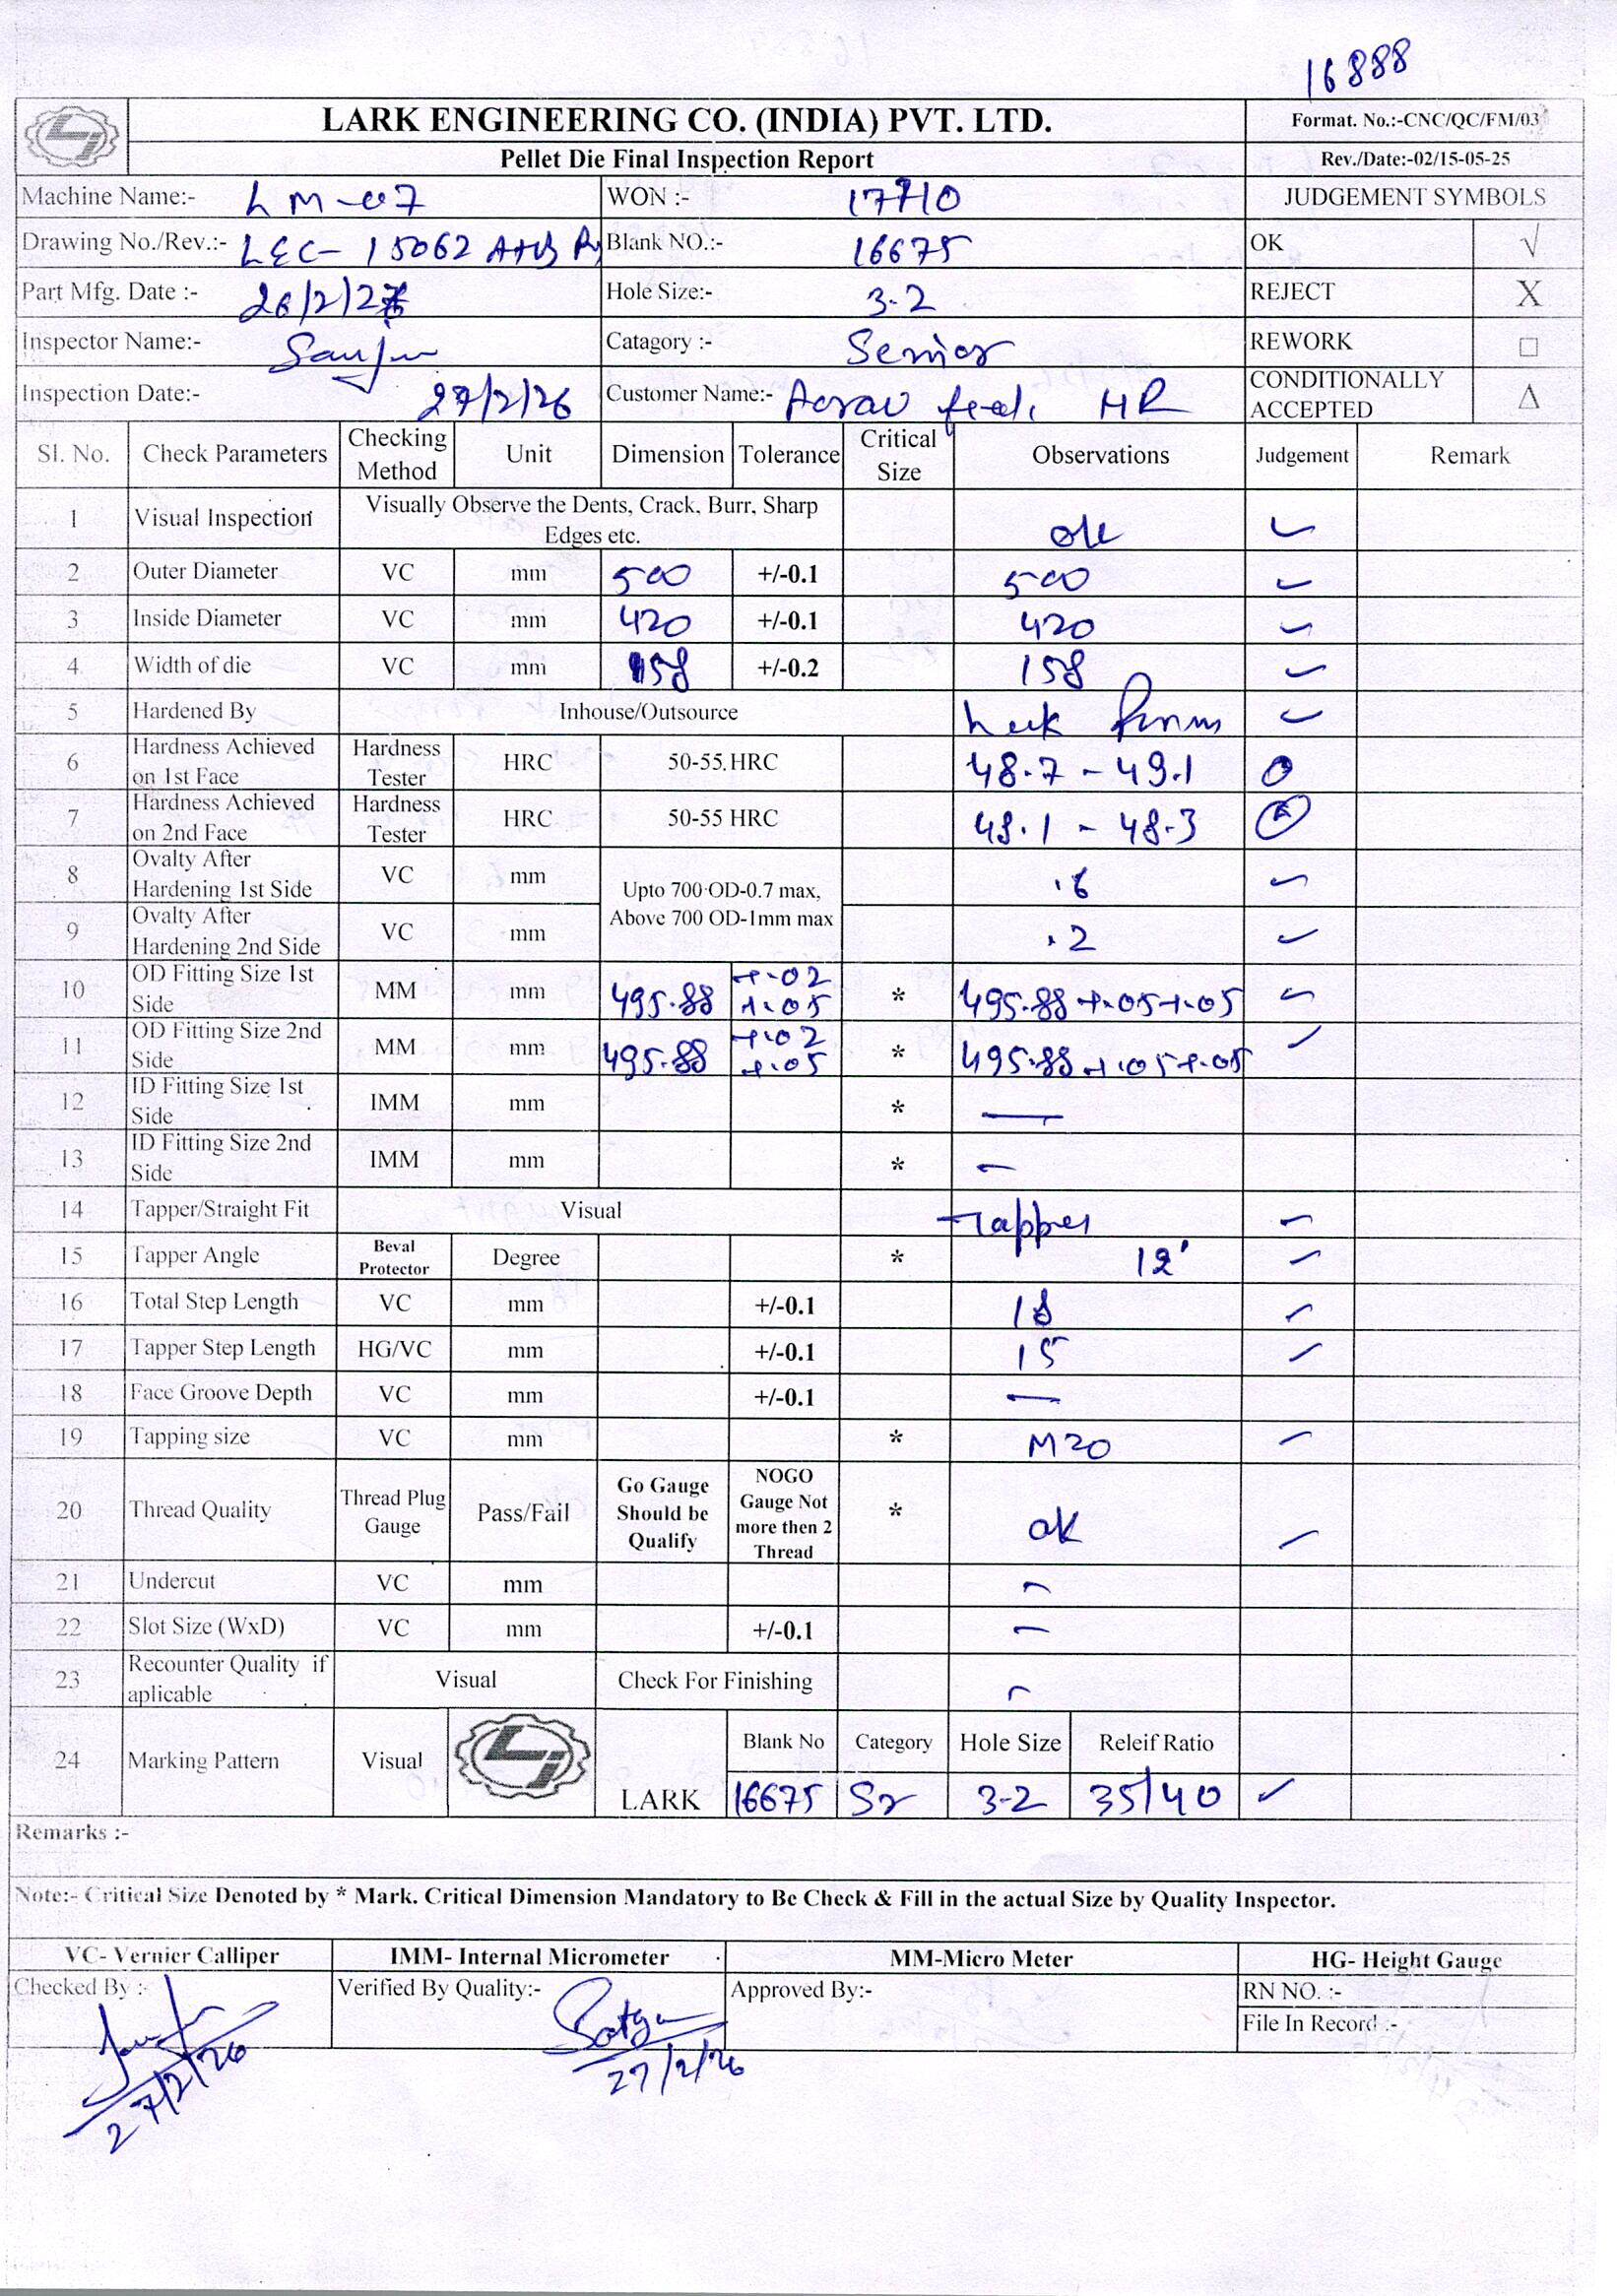 16888
LARK ENGINEERING CO. (INDIA) PVT. LTD.
Format. No.:-CNC/QC/FM/03
Pellet Die Final Inspection Report
Rev./Date:-02/15-05-25
Machine Name:- LM-07 WON :- 17710 JUDGEMENT SYMBOLS
Drawing No./Rev.:- LEC-15062 Blank NO.:- 16675 OK √
Part Mfg. Date :- 26/2/26 Hole Size:- 3.2 REJECT X
Inspector Name:- Catagory :- Senior REWORK □
Inspection Date:- 27/2/26 Customer Name:- Aarav feeds HR CONDITIONALLY ACCEPTED Δ
Sl. No. Check Parameters Checking Method Unit Dimension Tolerance Critical Size Observations Judgement Remark
1 Visual Inspection Visually Observe the Dents, Crack, Burr, Sharp Edges etc. ok ✓
2 Outer Diameter VC mm 500 +/-0.1 500 ✓
3 Inside Diameter VC mm 420 +/-0.1 420 ✓
4 Width of die VC mm 158 +/-0.2 158 ✓
5 Hardened By Inhouse/Outsource ✓
6 Hardness Achieved on 1st Face Hardness Tester HRC 50-55 HRC 48.7 - 49.1
7 Hardness Achieved on 2nd Face Hardness Tester HRC 50-55 HRC 48.1 - 48.3
8 Ovalty After Hardening 1st Side VC mm Upto 700 OD-0.7 max, Above 700 OD-1mm max .6 ✓
9 Ovalty After Hardening 2nd Side VC mm .2 ✓
10 OD Fitting Size 1st Side MM mm 495.88 +.02 +.05 * 495.88 +.05 +.05 ✓
11 OD Fitting Size 2nd Side MM mm 495.88 +.02 +.05 * 495.88 +.05 +.05 ✓
12 ID Fitting Size 1st Side IMM mm * —
13 ID Fitting Size 2nd Side IMM mm * —
14 Tapper/Straight Fit Visual Tapper ✓
15 Tapper Angle Beval Protector Degree * 12' ✓
16 Total Step Length VC mm +/-0.1 18 ✓
17 Tapper Step Length HG/VC mm +/-0.1 15 ✓
18 Face Groove Depth VC mm +/-0.1 —
19 Tapping size VC mm * M20 ✓
20 Thread Quality Thread Plug Gauge Pass/Fail Go Gauge Should be Qualify NOGO Gauge Not more then 2 Thread * ok ✓
21 Undercut VC mm —
22 Slot Size (WxD) VC mm +/-0.1 —
23 Recounter Quality if aplicable Visual Check For Finishing —
24 Marking Pattern Visual LARK Blank No Category Hole Size Releif Ratio
16675 Sr 3-2 35/40 ✓
Remarks :-
Note:- Critical Size Denoted by * Mark. Critical Dimension Mandatory to Be Check & Fill in the actual Size by Quality Inspector.
VC- Vernier Calliper IMM- Internal Micrometer MM-Micro Meter HG- Height Gauge
Checked By :- Verified By Quality:- Approved By:- RN NO. :-
File In Record :-
27/2/26 27/2/26